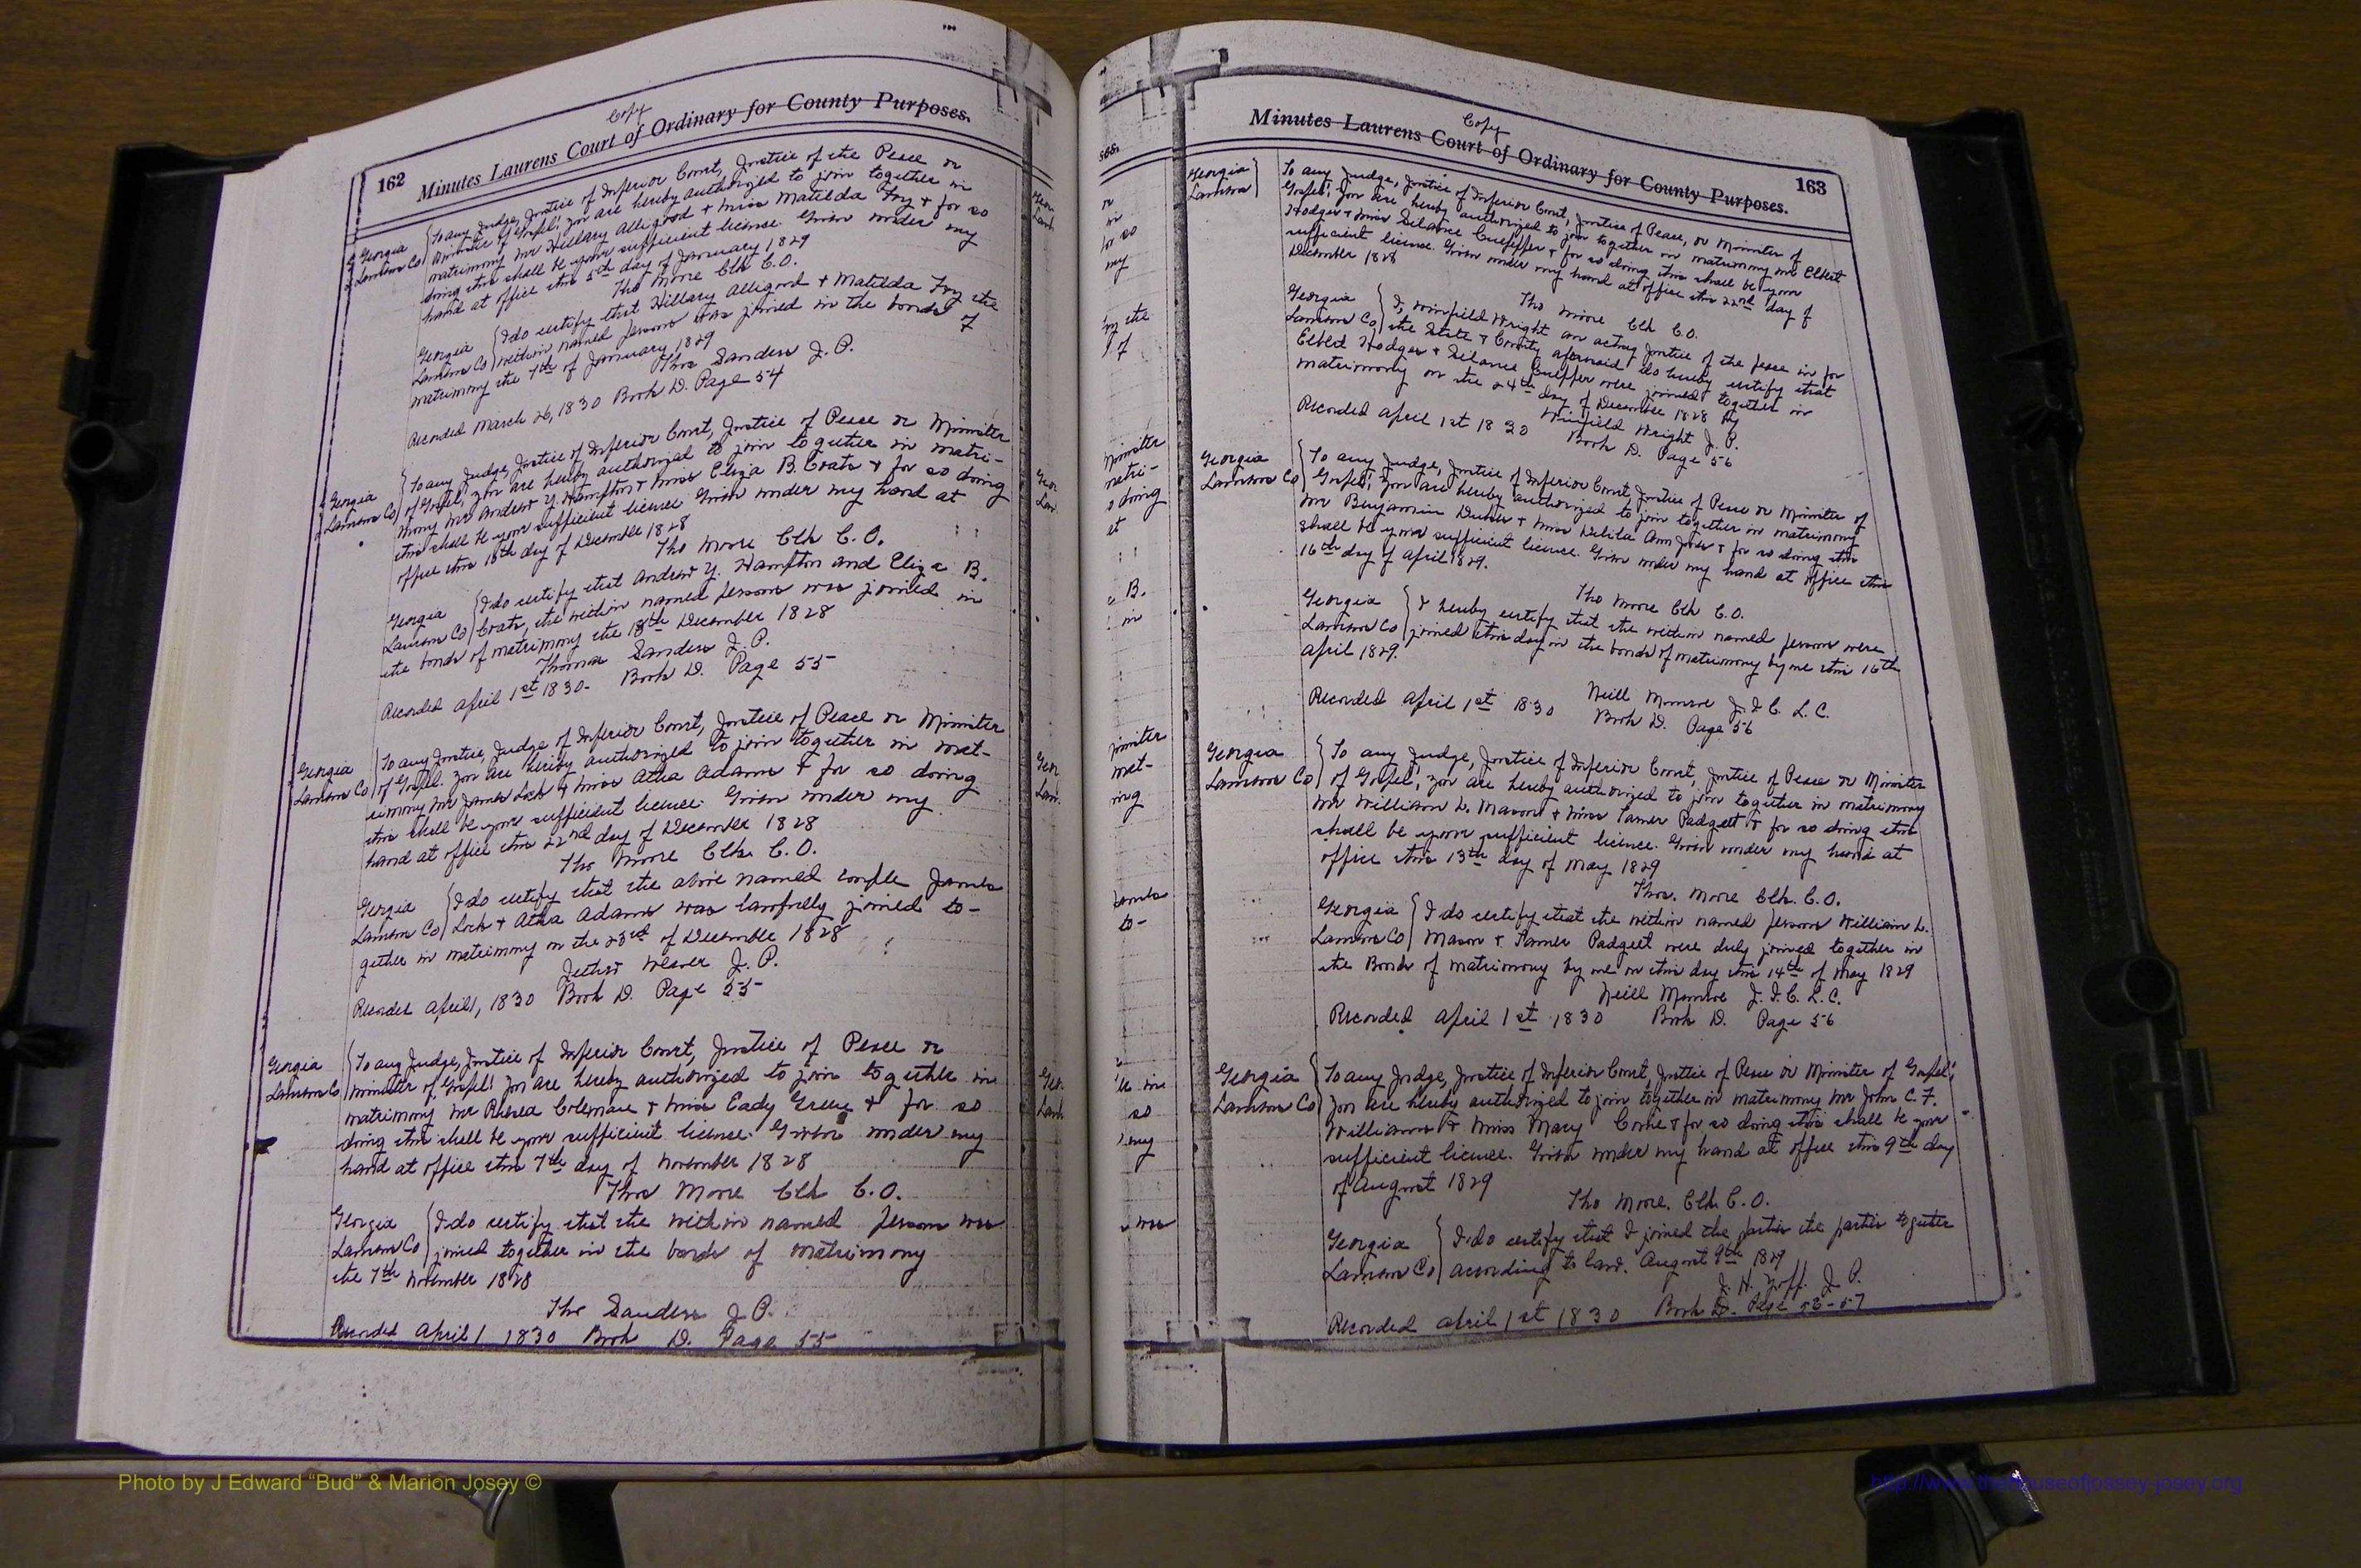 Copy
162 Minutes Laurens Court of Ordinary for County Purposes.
Georgia
Laurens Co
To any Judge, Justice of Inferior Court, Justice of the Peace or
Minister of Gospel: you are hereby authorized to join together in
matrimony Mr Hillary Alligood & Miss Matilda Fry & for so
doing this shall be your sufficient license. Given under my
hand at office this 5th day of January 1829
Tho Moore Clk C.O.
Georgia
Laurens Co
I do certify that Hillary Alligood & Matilda Fry the
within named persons was joined in the bonds of
matrimony the 7th of January 1829
Thos Sanders J. P.
Recorded March 26, 1830 Book D. Page 54
Georgia
Laurens Co
To any Judge, Justice of Inferior Court, Justice of Peace or Minister
of Gospel: you are hereby authorized to join together in matri-
mony Mr Andrew Y. Hampton & Miss Eliza B. Coats & for so doing
this shall be your sufficient license Given under my hand at
office this 18th day of December 1828
Tho Moore Clk C.O.
Georgia
Laurens Co
I do certify that Andrew Y. Hampton and Eliza B.
Coats, the within named persons was joined in
the bonds of matrimony the 18th December 1828
Thomas Sanders J. P.
Recorded April 1st 1830. Book D. Page 55
Georgia
Laurens Co
To any Justice, Judge of Inferior Court, Justice of Peace or Minister
of Gospel. you are hereby authorized to join together in mat-
rimony Mr James Lock & Miss Atha Adams & for so doing
this shall be your sufficient license. Given under my
hand at office this 22nd day of December 1828
Tho Moore Clk. C.O.
Georgia
Laurens Co
I do certify that the above named couple James
Lock & Atha Adams was lawfully joined to-
gether in matrimony on the 23rd of December 1828
Weaver J. P.
Recorded April 1, 1830 Book D. Page 55
Georgia
Laurens Co
To any Judge, Justice of Inferior Court, Justice of Peace or
Minister of Gospel: you are hereby authorized to join together in
matrimony Mr Coleman & Miss Eady Green & for so
doing this shall be your sufficient license. Given under my
hand at office this 7th day of November 1828
Thos Moore Clk C.O.
Georgia
Laurens Co
I do certify that the within named persons was
joined together in the bonds of matrimony
the 7th November 1828
Tho Sanders J.P.
Recorded April 1 1830 Book D. Page 55
Copy
Minutes Laurens Court of Ordinary for County Purposes. 163
Georgia
Laurens
To any Judge, Justice of Inferior Court, Justice of Peace, or Minister of
Gospel: you are hereby authorized to join together in matrimony Mr Elbert
Hodges & Miss & for so doing this shall be your
sufficient license. Given under my hand at office this 22nd day of
December 1828
Tho Moore Clk C.O.
Georgia
Laurens Co
I, Winfield Wright an acting Justice of the peace in for
the State & County aforesaid do hereby certify that
Elbert Hodges & were joined together in
matrimony on the 24th day of December 1828 by
Winfield Wright J. P.
Recorded April 1st 1830 Book D. Page 56
Georgia
Laurens Co
To any Judge, Justice of Inferior Court, Justice of Peace or Minister of
Gospel: you are hereby authorized to join together in matrimony
Mr Benjamin & Miss Delila Ann & for so doing this
shall be your sufficient licence. Given under my hand at office this
16th day of April 1829.
Tho Moore Clk C.O.
Georgia
Laurens Co
I hereby certify that the within named persons were
joined this day in the bonds of matrimony by me this 16th
April 1829.
Neill Munroe J.I.C. L.C.
Recorded April 1st 1830 Book D. Page 56
Georgia
Laurens Co
To any Judge, Justice of Inferior Court, Justice of Peace or Minister
of Gospel; you are hereby authorized to join together in matrimony
Mr William L. Mason & Miss Tamer Padgett & for so doing this
shall be your sufficient licence. Given under my hand at
office this 13th day of May 1829
Thos. Moore Clk. C.O.
Georgia
Laurens Co
I do certify that the within named persons William L.
Mason & Tamer Padgett were duly joined together in
the Bonds of matrimony by me on this day this 14th of May 1829
Neill Munroe J.I.C. L.C.
Recorded April 1st 1830 Book D. Page 56
Georgia
Laurens Co
To any Judge, Justice of Inferior Court, Justice of Peace or Minister of Gospel;
you are hereby authorized to join together in matrimony Mr John C. F.
Williams & Miss Mary & for so doing this shall be your
sufficient licence. Given under my hand at office this 9th day
of August 1829
Tho Moore. Clk C.O.
Georgia
Laurens Co
I do certify that I joined the parties the parties together
according to law. August 9th 1829
J. P.
Recorded April 1st 1830 Book D. Page 56-57
Photo by J Edward “Bud” & Marion Josey ©
http://www.thehouseofjossey-josey.org